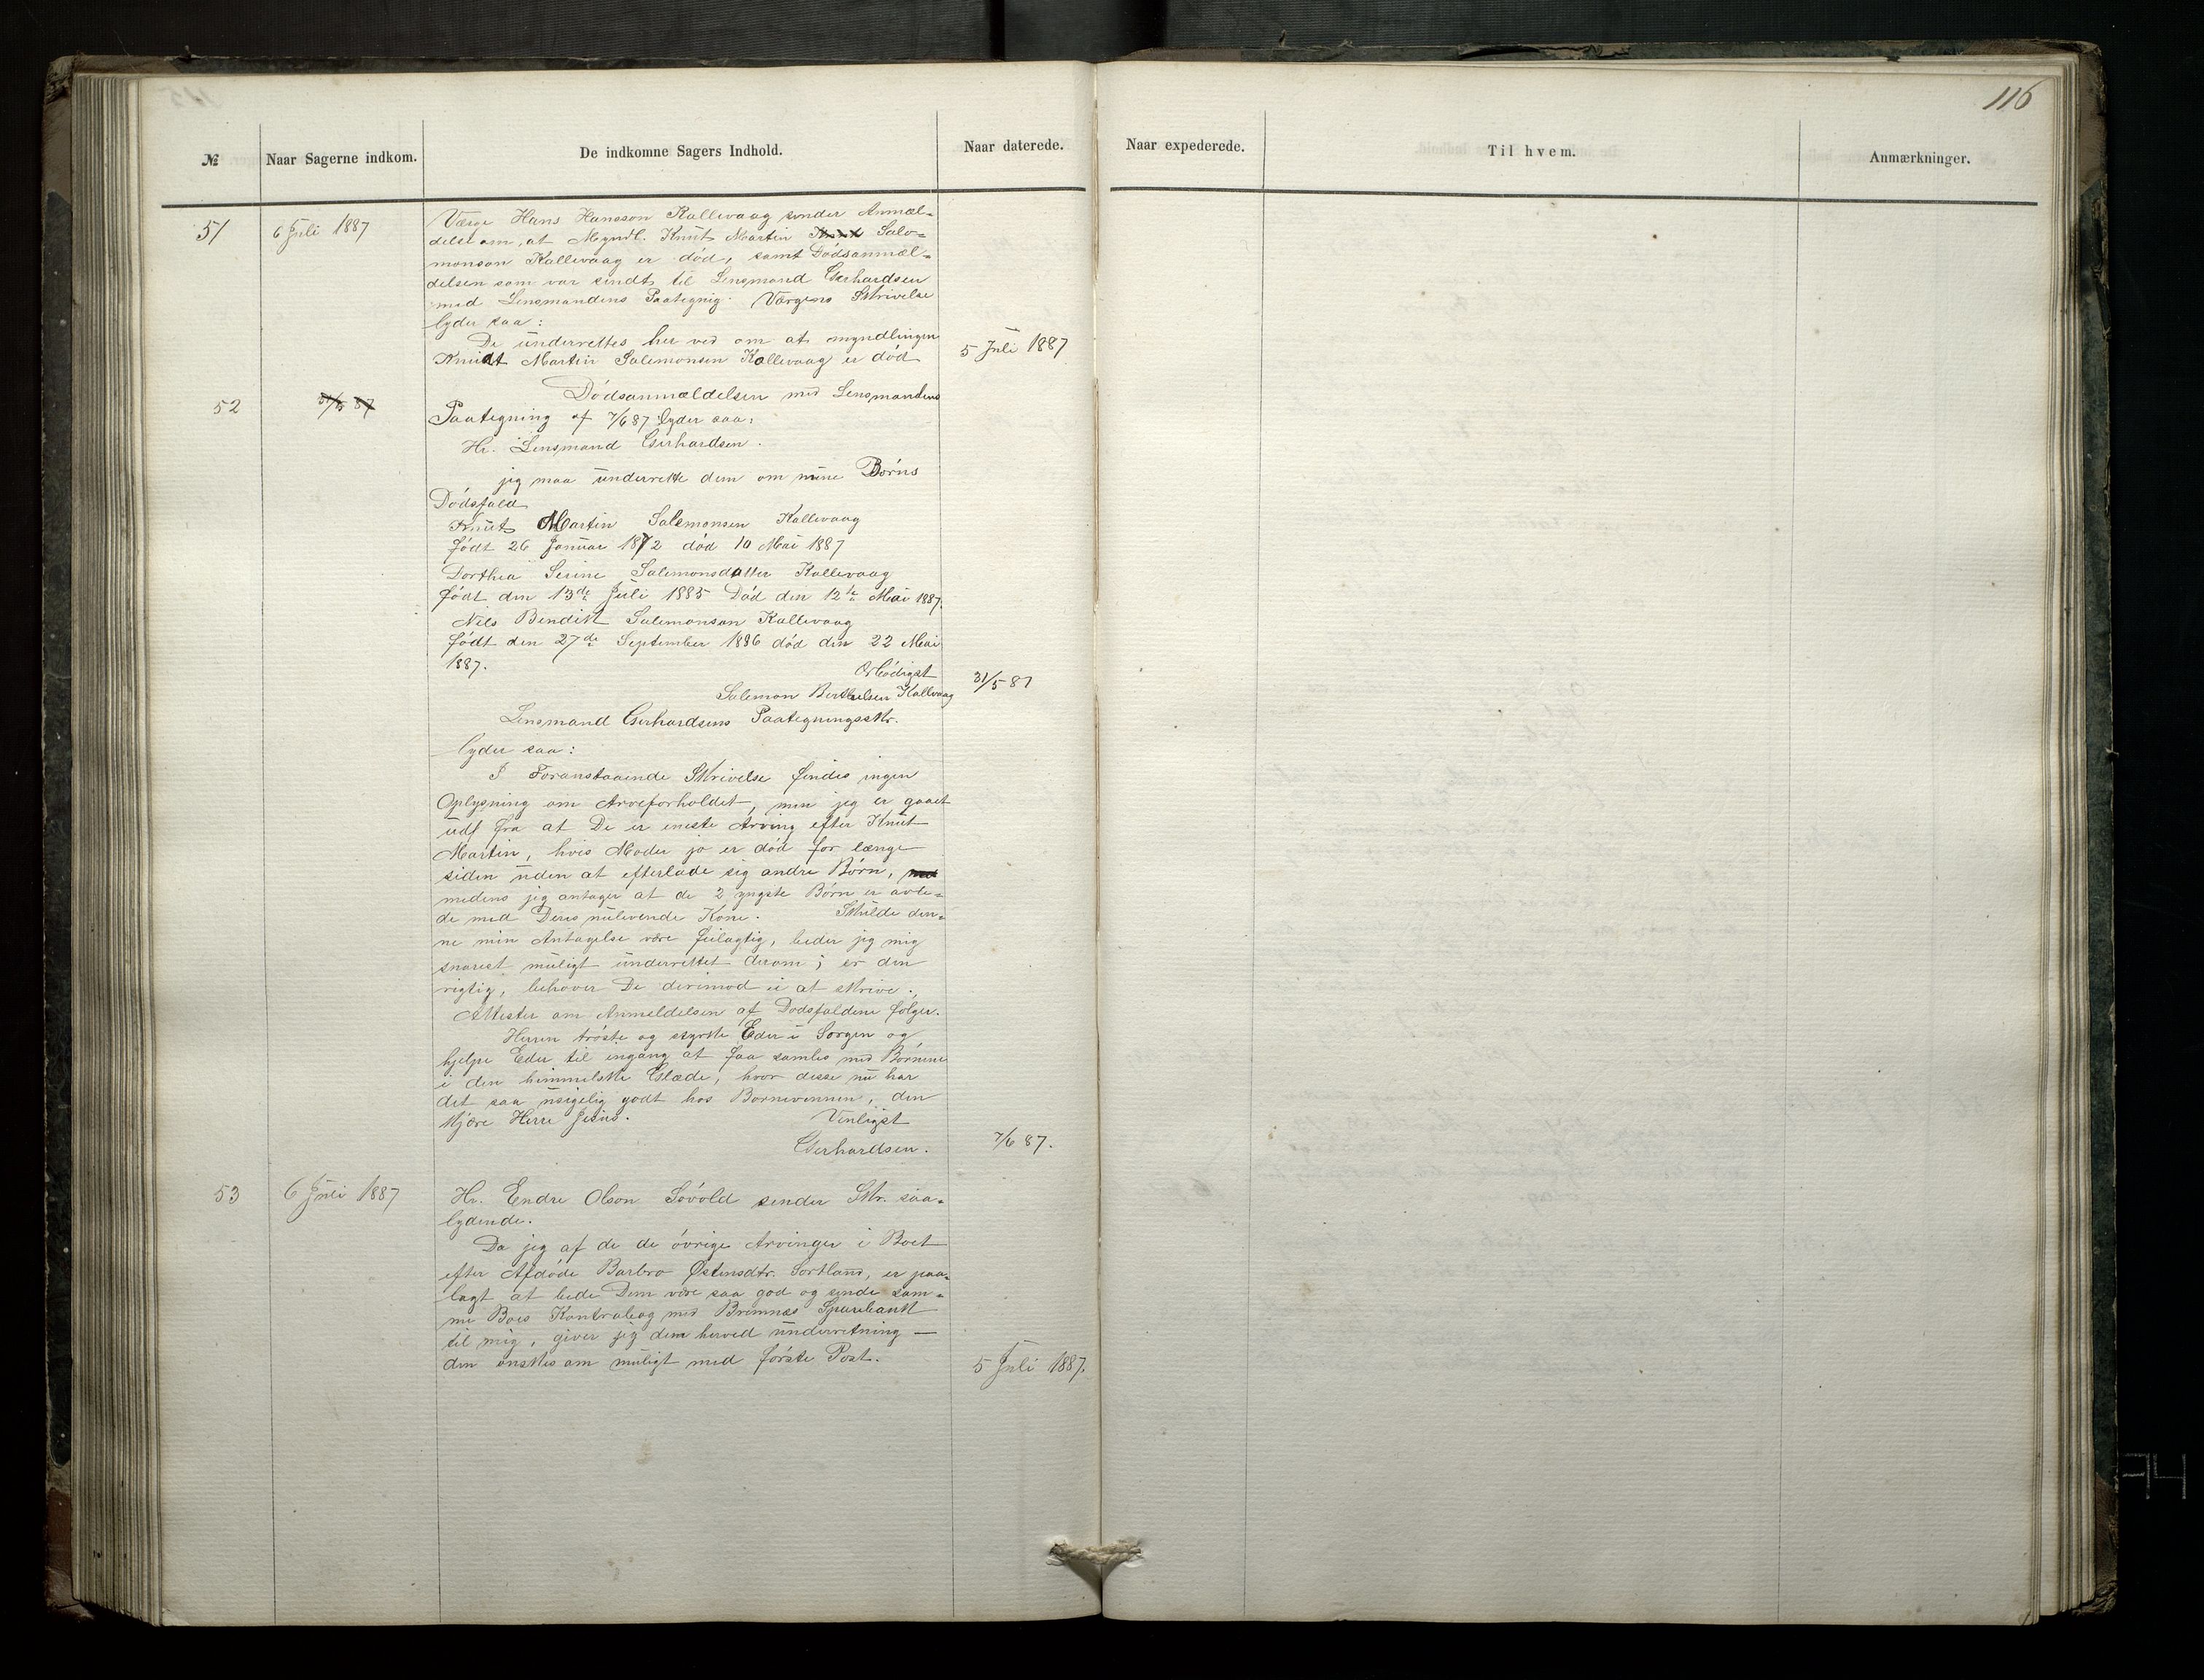 116
№ Naar Sagerne indkom. De indkomne Sagers Indhold. Naar daterede. Naar expederede. Til hvem. Anmærkninger.
51 6 Juli 1887 Værge Hans Hansson Kallevaag sender Anmæl-
delse om, at Myndl. Knut Martin Salo-
monson Kallevaag er død, samt Dødsanmæl-
delsen som var sendt til Lensmand Gerhardsen
med Lensmandens Paategnig. Værgens Skrivelse
lyder saa:
De underrettes her ved om at myndlingen
Knudt Martin Salemonsen Kallevaag er død 5 Juli 1887
52 31/5 87 Dødsanmældelsen med Lensmandens
Paategning af 7/6 87 lyder saa:
Hr. Lensmand Gerhardsen.
jeg maa underrette dem om mine Børns
Dødsfald
Knut Martin Salemonsen Kallevaag
født 26 Januar 1872 død 10 Mai 1887
Dorthea Serine Salemonsdatter Kallevaag
født den 13de Juli 1885 Død den 12te Mai 1887.
Nils Bendikt Salemonson Kallevaag
født den 27de September 1886 død den 22 Mai
1887.
Ærbødigst
Salemon Berthelsen Kallevaag 31/5 87
Lensmand Gerhardsens Paategningsskr.
lyder saa:
I Foranstaaende Skrivelse findes ingen
Oplysning om Arveforholdet, men jeg er gaaet
udf fra at De er eneste Arving efter Knut
Martin, hvis Moder jo er død for længe
siden uden at efterlade sig andre Børn,
medens jeg antager at de 2 yngste Børn er avle-
de med Deres nulevende Kone. Skulde den-
ne min Antagelse være feilagtig, beder jeg mig
snarest muligt underrettet derom; er den
rigtig, behøver De derimod ei at skrive.
Attester om Anmeldelsen af Dødsfaldene følger.
Herren trøste og styrke Eder i Sorgen og
hjelpe Eder til engang at faa samles med Børnene
i den himmelske Glæde, hvor disse nu har
det saa usigelig godt hos Børnevennen, den
kjære Herre Jesus. Venligst
Gerhardsen. 7/6 87.
53 6 Juli 1887 Hr. Endre Olson Søvold sender Skr. saa-
lydende.
Da jeg af de de øvrige Arvinger i Boet
efter Afdøde Barbro Østensdtr. Sortland, er paa-
lagt at bede Dem være saa god og sende sam-
me Boes Kontrabog med Bremnæs Sparebank
til mig, giver jeg dem herved underretning —
den ønskes om muligt med første Post. 5 Juli 1887.